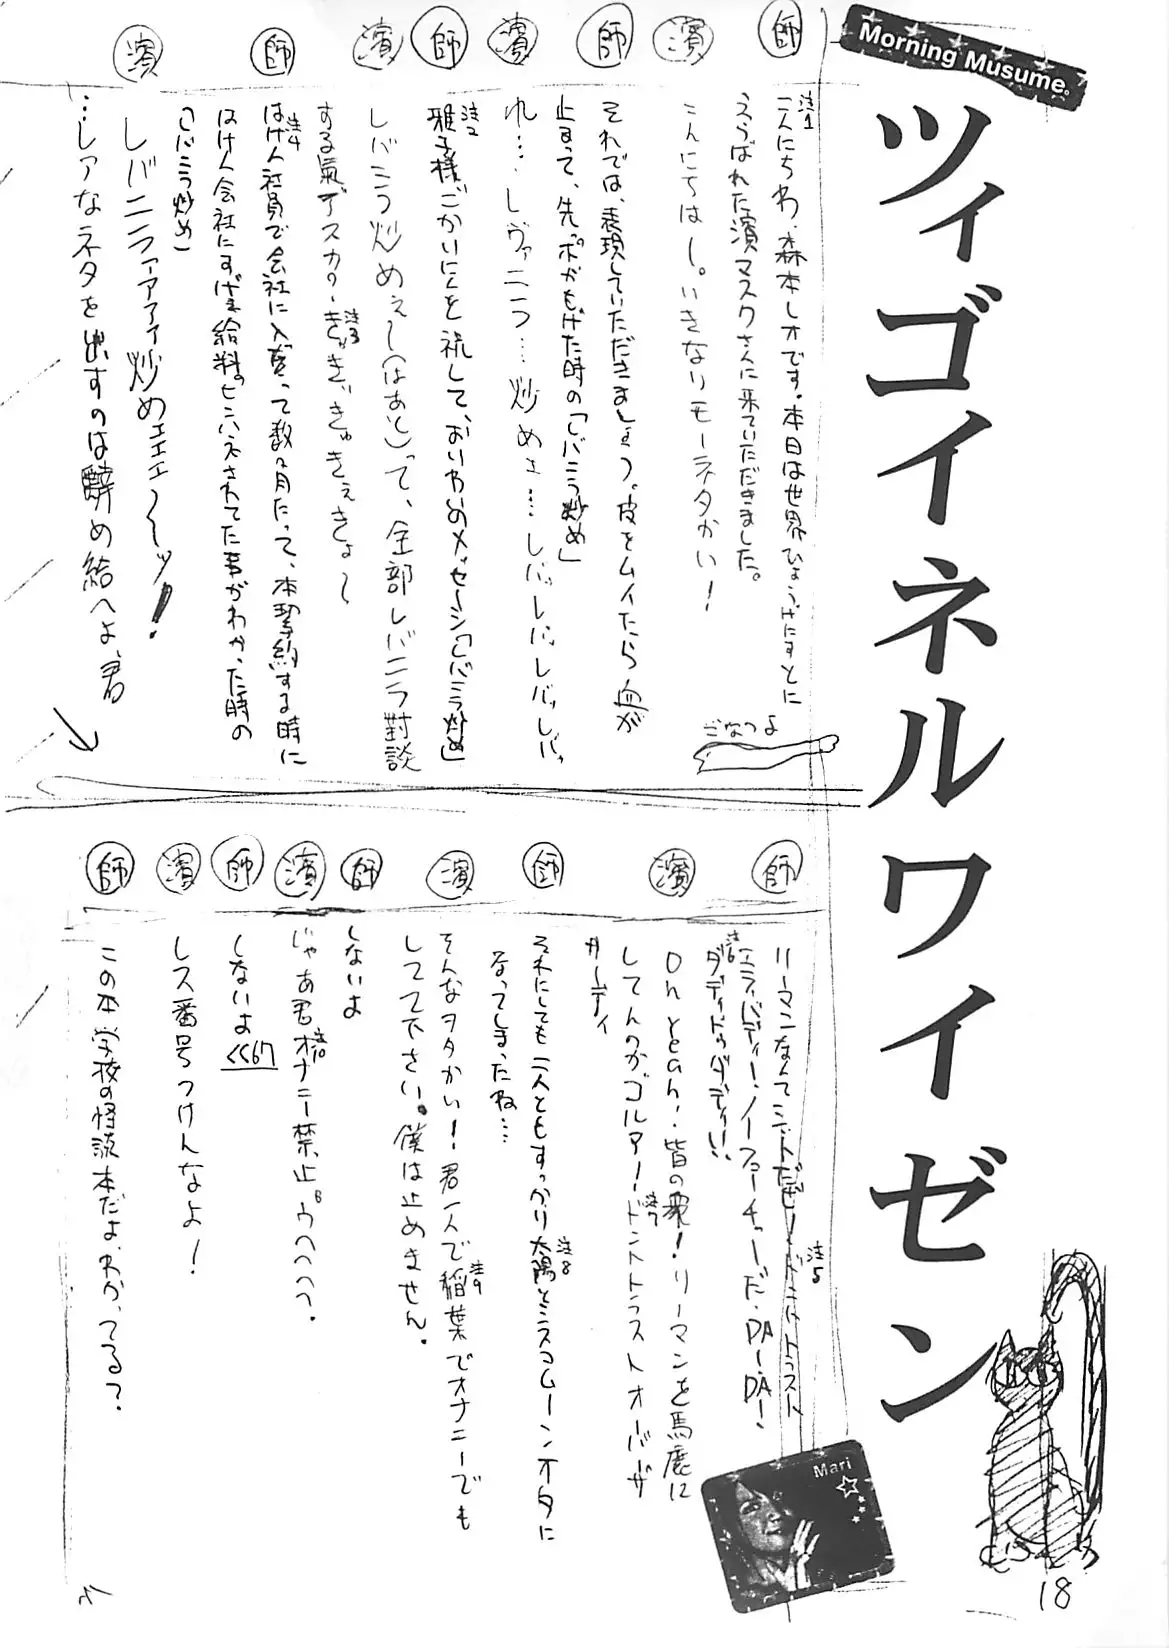 Morning Musume。
ツィゴイネルワイゼン
師
注1
こんにちわ、森本レオです。本日は世界ひょうげにすとに
えらばれた濱マスクさんに来ていただきました。
濱
こんにちはし。いきなりモーネタかい！
師
それでは、表現していただきましょう。皮をムイたら血が
止まって、先ッポがもげた時の「レバニラ炒め」
濱
れ…レヴァニラ…炒めェ…レバッレバッレバッレバッ
師
注2
雅子様ごかいにんを祝して、おいわいのメッセージ「レバニラ炒め」
濱
レバニラ炒めぇ〜(はあと)って、全部レバニラ對談
する氣デスカ？
注3
ぎゃぎぃぎゅぎぇぎょ〜
師
注4
はけん社員で会社に入って数ヶ月たって、本契約する時に
はけん会社にすげぇ給料のピンハネされてた事がわかった時の
「レバニラ炒め」
濱
レバニラァアァィ炒めェエェ〜ッ！
…レアなネタを出すのは辭め給へよ、君
ごなつよ
師
リーマンなんてシットだぜ！
注5
ドントトラスト
エライバディー・ノーフューチャーだ・DA・DA！
注6
ダディドゥダディ！
濱
Oh yeah！皆の衆！リーマンを馬鹿に
してんのかゴルァ！
注7
ドントトラストオーバーサ
ーティ
師
それにしても二人ともすっかり
注8
太陽とシスコムーンオタに
なってしまったね…
濱
そんなヲタかい！君一人で
注9
稲葉でオナニーでも
してて下さい。僕は止めません。
師
しないよ
濱
じゃあ君
注10
オナニー禁止。ウヘヘヘ。
師
しないよ<<67
濱
レス番号つけんなよ！
師
この本学校の怪談本だよ、わかってる？
Mari
18